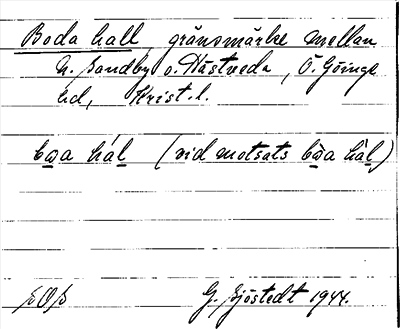 Boda hall, gränsmärke mellan
N. Sandby o. Hästveda, Ö. Göinge
hd, Krist. l.
bɷa hál (vid motsats bɷ̀a hàl)
SOS
G. Sjöstedt 1944.